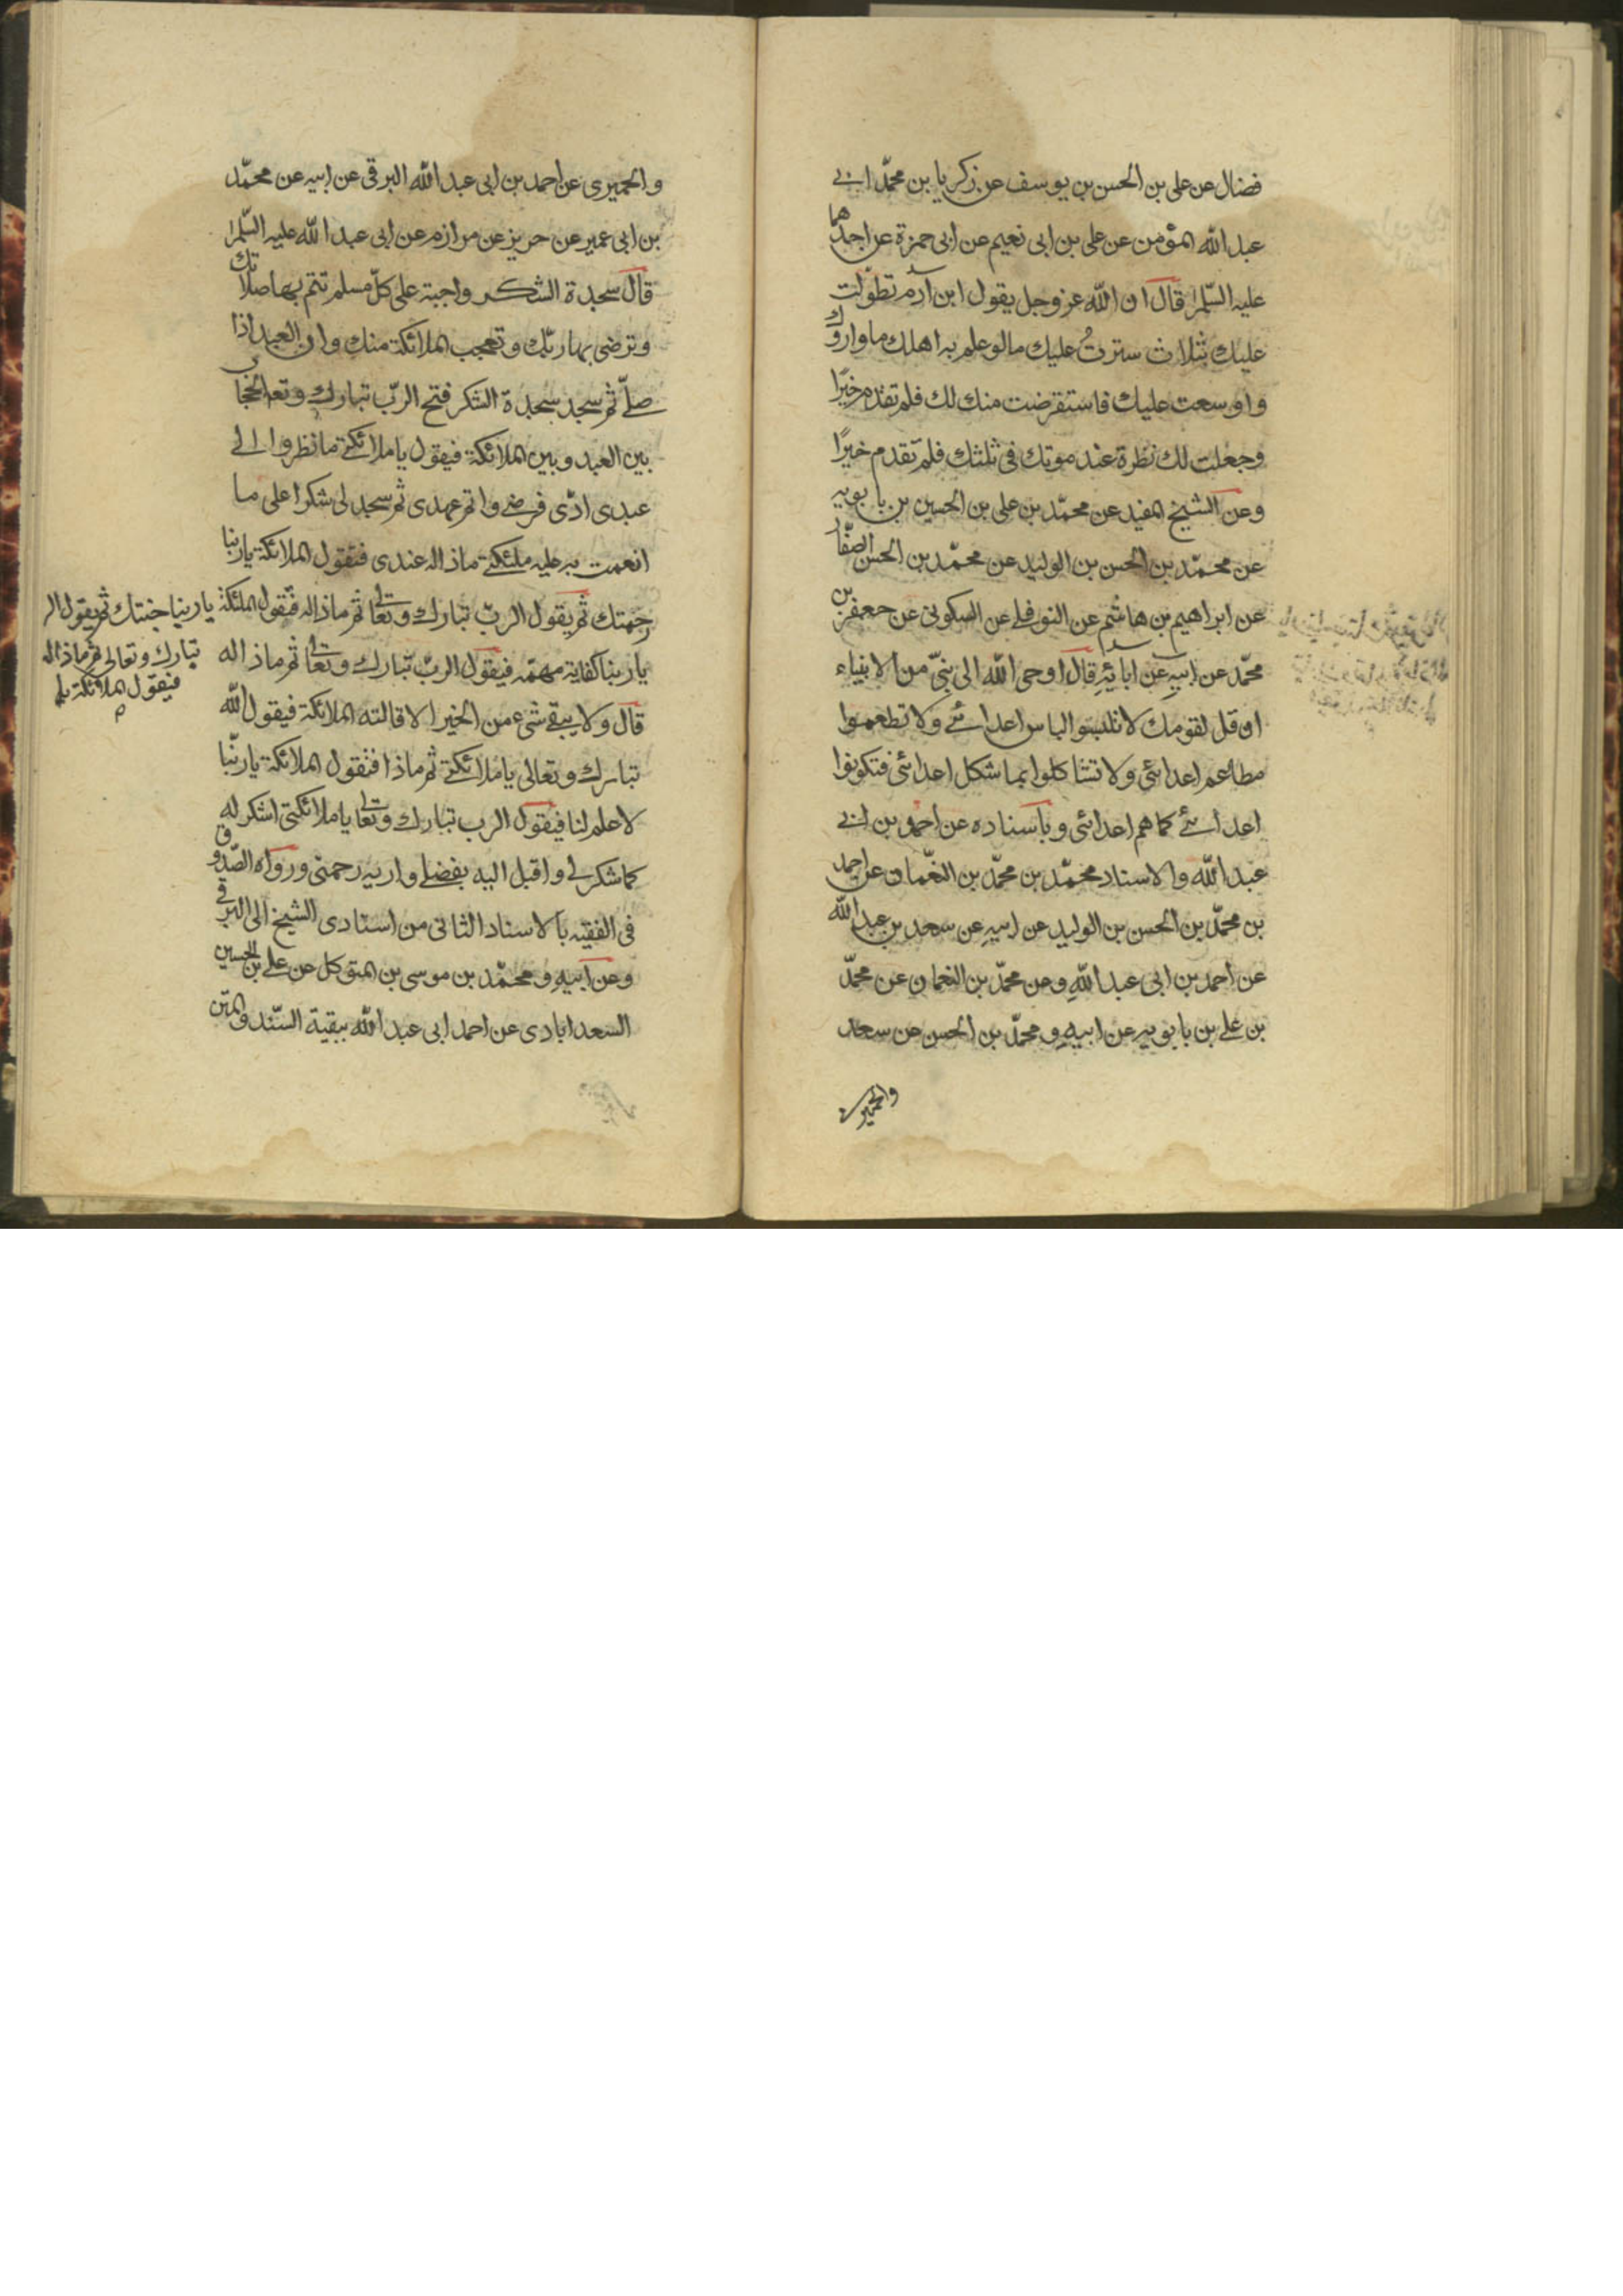 فضال عن على بن الحسن بن يوسف عن زكريا بن محمّد ابى
عبد الله المؤمن عن على بن ابى نعيم عن ابى حمزة عن احدهما
عليه السّلم قال ان الله عز وجل يقول ابن آدم تطوّلت
عليك بثلاث سترتُ عليك مالو علم به اهلك ما واروك
واوسعت عليك فاستقرضت منك لك فلم تقدم خيرًا
وجعلت لك نظرة عند موتك فى ثلثك فلم تقدم خيرًا
وعن الشيخ المفيد عن محمّد بن على بن الحسين بن بابويه
عن محمّد بن الحسن بن الوليد عن محمّد بن الحسن الصفّار
عن ابراهيم بن هاشم عن النوفلى عن السكونى عن جعفر بن
محمّد عن ابيه عن ابائهِ قال اوحى الله الى نبىّ من الانبياء
ان قل لقومك لا تلبسوا لباس اعدائى ولا تطعموا
مطاعم اعدائى ولا تشاكلوا بما شكل اعدائى فتكونوا
اعدائى كما هم اعدائى وباسناده عن احمد بن ابى
عبد الله والاسناد محمّد بن محمّد بن النعّمان عن احمد
بن محمّد بن الحسن بن الوليد عن ابيهِ عن سعد بن عبد الله
عن احمد بن ابى عبد اللهِ وعن محمّد بن النعمان عن محمّد
بن على بن بابويه عن ابيهِ ومحمّد بن الحسن عن سعد
والحميرى
والحميرى عن احمد بن ابى عبد الله البرقى عن ابيه عن محمّد
بن ابى عمير عن حريز عن مرازم عن ابى عبد الله عليه السّلم
قال سجدة الشكر واجبة على كلّ مسلم تتم بها صلاتك
وترضى بها ربّك وتعجب الملائكة منك وان العبد اذا
صلّى ثم سجد سجدة الشكر فتح الربّ تبارك وتعالى الحجاب
بين العبد وبين الملائكة فيقول يا ملائكتى انظروا الى
عبدى ادّى فرضى واتم عهدى ثم سجد لى شكرا على ما
انعمت به عليه ملئكتى ماذا له عندى فتقول الملائكة يا ربنا
رحمتك ثم يقول الربّ تبارك وتعالى ثم ماذا له فتقول الملئكة يا ربنا جنتك ثم يقول الر
تبارك وتعالى ثم ماذا له
فيقول الملائكة
يا ربنا كفاية مهمّه فيقول الربّ تبارك وتعالى ثم ماذا له
قال ولا يبقى شىء من الخير الا قالته الملائكة فيقول الله
تبارك وتعالى يا ملائكتى ثم ماذا فتقول الملائكة يا ربّنا
لا علم لنا فيقول الرب تبارك وتعالى يا ملائكتى اشكر له
كما شكر لى واقبل اليه بفضلى واريه رحمتى ورواه الصّدوق
فى الفقيه بالاسناد الثانى من اسنادى الشيخ الى البرقى
وعن ابيهِ ومحمّد بن موسى بن المتوكل عن على بن الحسين
السعدابادى عن احمد ابى عبد الله ببقية السّند والمتن